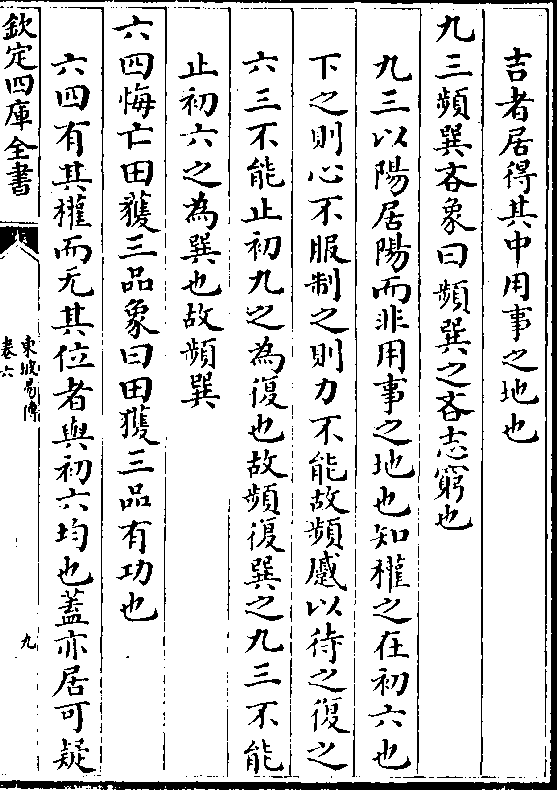 吉者居得其中用事之地也
九三頻巽吝象曰頻巽之吝志窮也
九三以陽居陽而非用事之地也知權之在初六也
下之則心不服制之則力不能故頻蹙以待之復之
六三不能止初九之為復也故頻復巽之九三不能
止初六之為巽也故頻巽
六四悔亡田獲三品象曰田獲三品有功也
六四有其權而无其位者與初六均也蓋亦居可疑
欽定四庫全書
東坡易傳
卷六
九